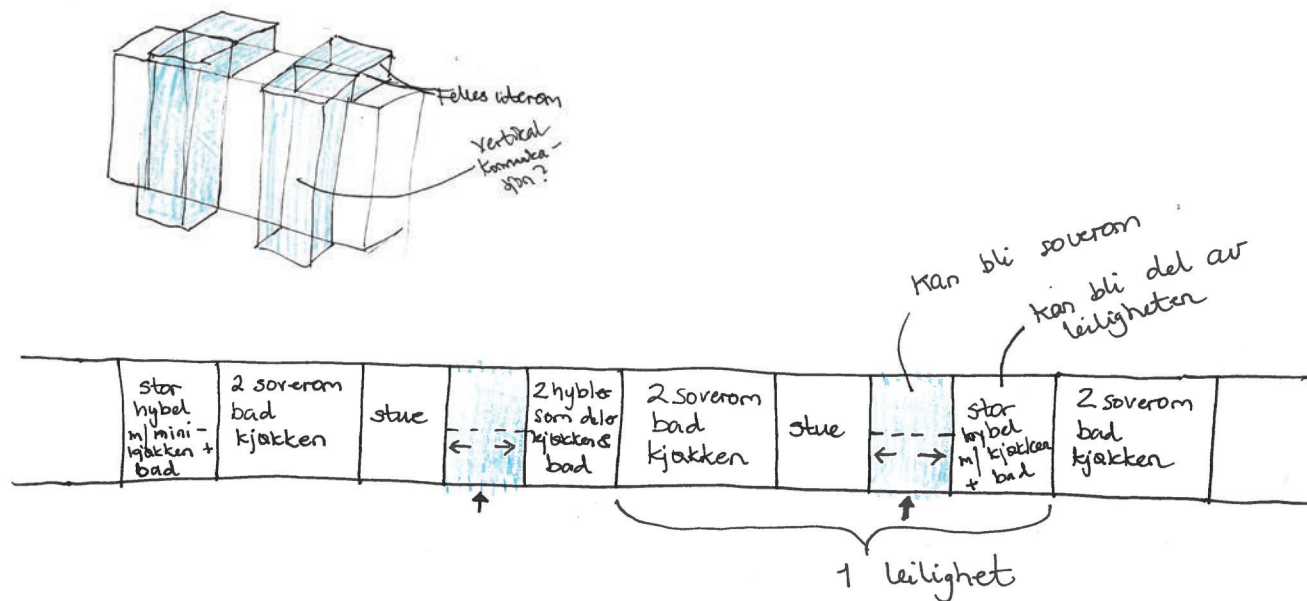 Felles uterom
vertikal
kommuka-
sjon?
kan bli soverom
kan bli del av
leiligheten
stor
hybel
m/mini-
kjøkken +
bad
2 soverom
bad
kjøkken
stue
2 hybler
som deler
kjøkken &
bad
2 soverom
bad
kjøkken
stue
stor
hybel
m/ kjøkken
+ bad
2 soverom
bad
kjøkken
1 leilighet